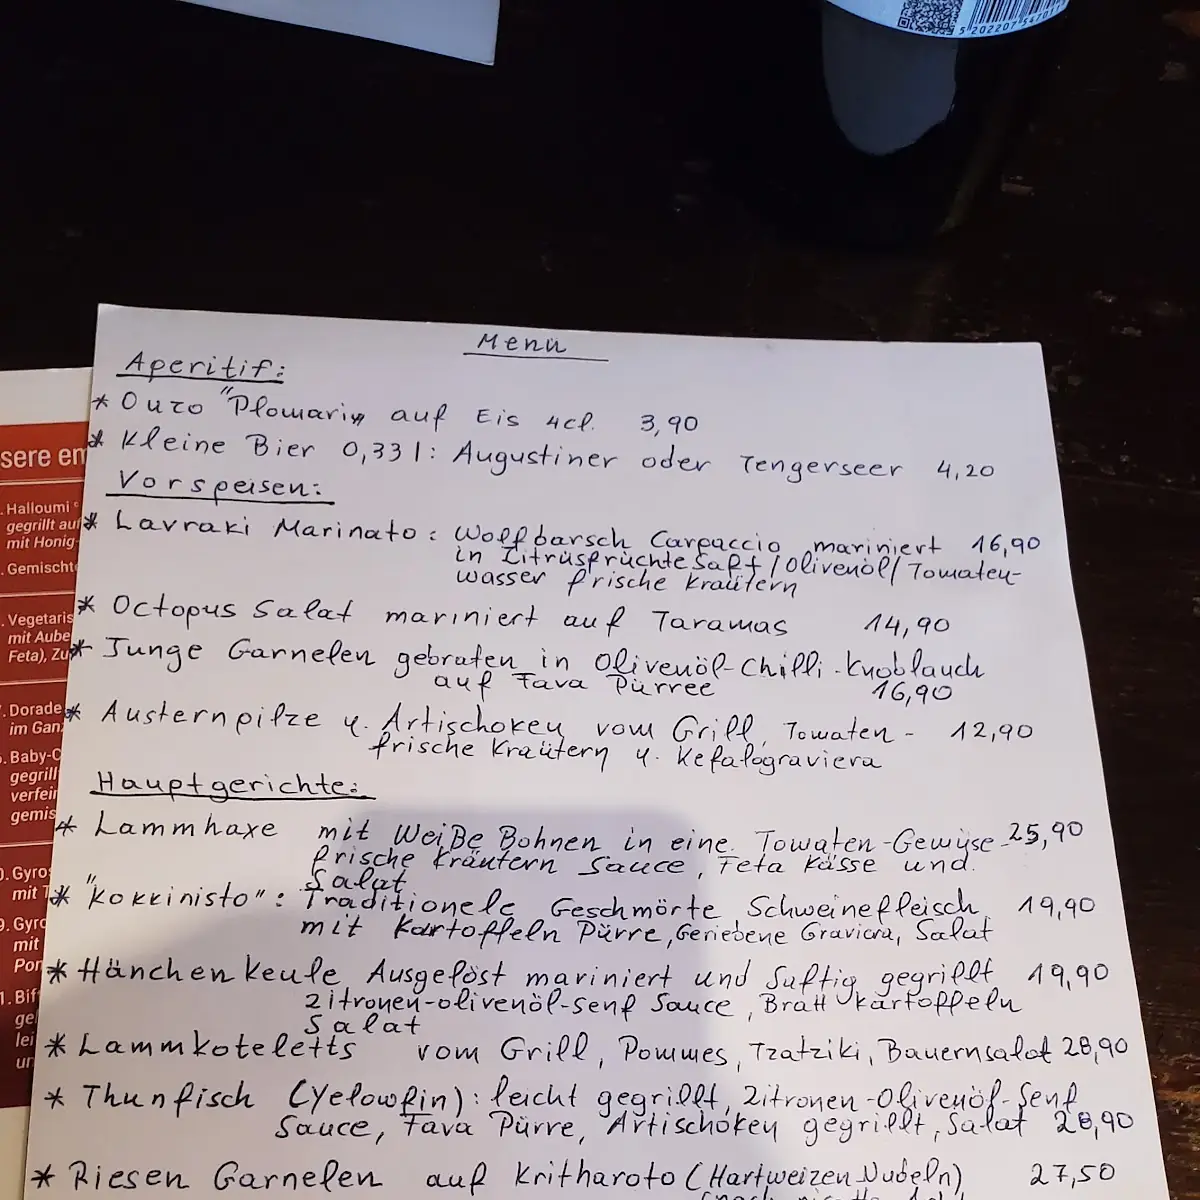 5 202207
Menü
Aperitif:
* Ouzo "Plomari" auf Eis 4cl. 3,90
* Kleine Bier 0,33l: Augustiner oder Tengerseer 4,20
Vorspeisen:
* Lavraki Marinato: Wolfbarsch Carpaccio mariniert 16,90
in Zitrusfrüchte Saft/Olivenöl/Tomaten-
wasser frische Kraütern
* Octopus Salat mariniert auf Taramas 14,90
* Junge Garnelen gebraten in Olivenöl-Chilli-Knoblauch
auf Fava Pürree 16,90
* Austernpilze u. Artischoken vom Grill, Tomaten- 12,90
frische Kraütern u. Kefalograviera
Hauptgerichte:
* Lammhaxe mit Weiße Bohnen in eine Tomaten-Gemüse- 25,90
frische Kräutern Sauce, Feta Kässe und
Salat
* "Kokkinisto": Traditionele Geschmörte Schweinefleisch, 19,90
mit Kartoffeln Pürre, Geriebene Graviera, Salat
* Hänchenkeule Ausgelöst mariniert und Suftig gegrillt 19,90
Zitronen-olivenöl-senf Sauce, Bratt Kartoffeln
Salat
* Lammkoteletts vom Grill, Pommes, Tzatziki, Bauernsalat 28,90
* Thunfisch (Yelowfin): leicht gegrillt, Zitronen-Olivenöl-Senf
Sauce, Fava Pürre, Artischoken gegrillt, Salat 28,90
* Riesen Garnelen auf Kritharoto (Hartweizen Nudeln) 27,50
sere em
. Halloumi
gegrillt auf
mit Honig-
. Gemischte
. Vegetaris
mit Aube
Feta), Zu
. Dorade
im Ganz
. Baby-C
gegrill
verfein
gemis
. Gyros
mit T
9. Gyro
mit
Pom
1. Bif
ge
lei
un